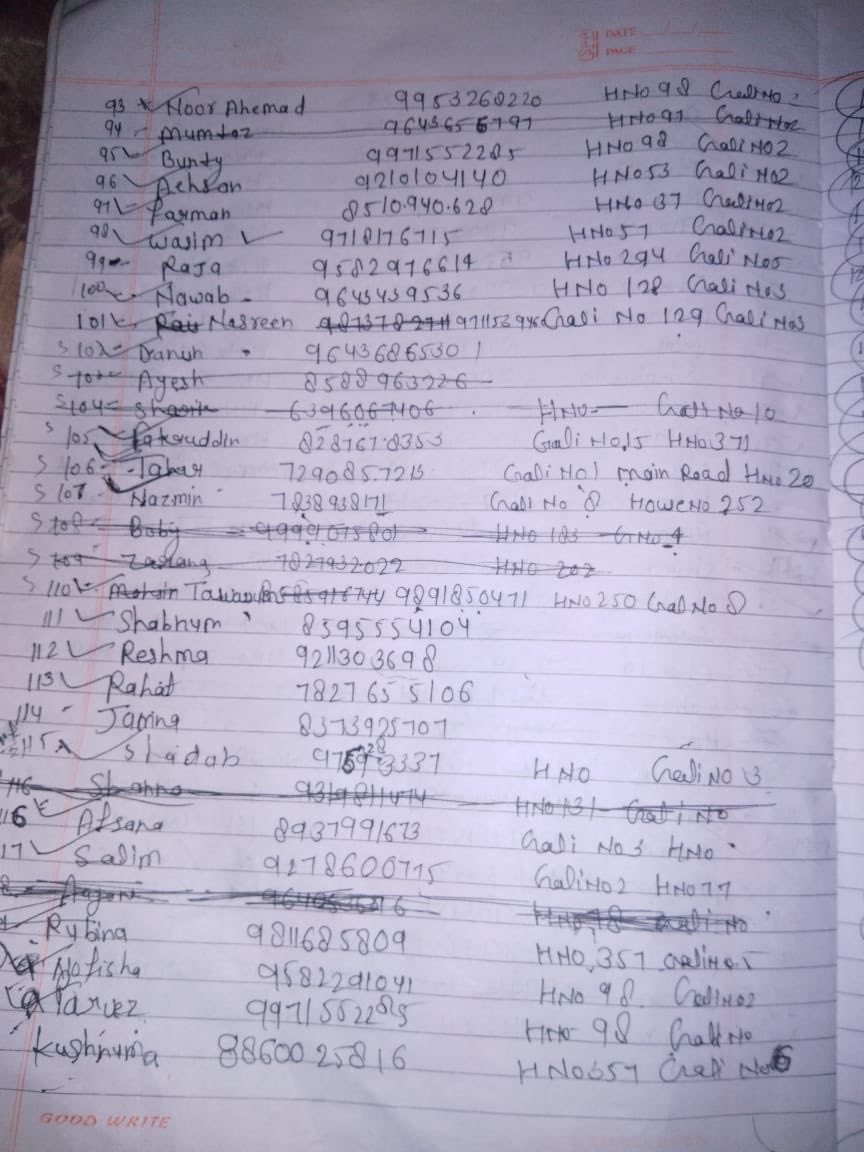 DATE
PAGE
93 Noor Ahemad 9953260220 HNO 98 Gali NO 2
94 Mumtaz HNO 97 Gali NO2
95 Bunty 9971552285 HNO 98 Gali NO2
96 Aehsan 9210104140 HNO 53 Gali NO2
97 Farman 8510.940.628 HNO 37 Gali NO2
98 Wasim 9718176715 HNO 57 Gali NO2
99 Raja 9582976614 HNO 294 Gali No5
100 Nawab 9643439536 HNO 128 Gali No3
101 Nasreen Gali No 129 Gali No3
S 102 Danish 9643686530 1
S Ayesh 8588963226
S104 6396067406 HNO Gali No 10
S 105 Fakruddin 828767.8353 Gali No,15 HNO371
S 106 Tahar 7290857213 Gali No 1 main Road HNO 20
S 107 Nazmin 7838938171 Gali No 8 HoweNO 252
S 108 Boby HNO 183 GNO 4
S 109 7827932022 HNO 202
S 110 Mohsin 9891850471 HNO 250 Gali No 8
111 Shabnum 8595554104
112 Reshma 9211303698
113 Rahat 7827655106
114 8373925707
115 Shadab HNO Gali NO 3
116 HNO 131 Gali NO
116 Afsana 8937991673 Gali No 3 HNO
17 Salim 9278600775 Gali NO2 HNO 77
Gali NO
Rybina 9811685809 HNO, 357 Gali NO 5
Nafisha 9582291041 HNO 98 Gali NO2
Parvez 9971552285 HNO 98 Gali No
Kushnuma 8860025816 HNO 357 Gali No 6
GOOD WRITE